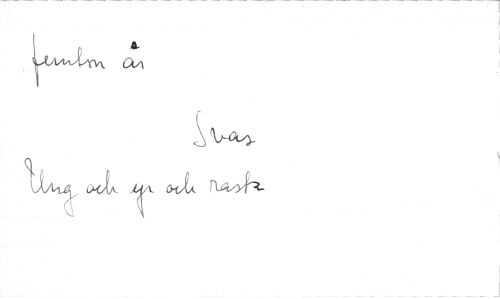 femton år
Svar
Ung och yr och rask